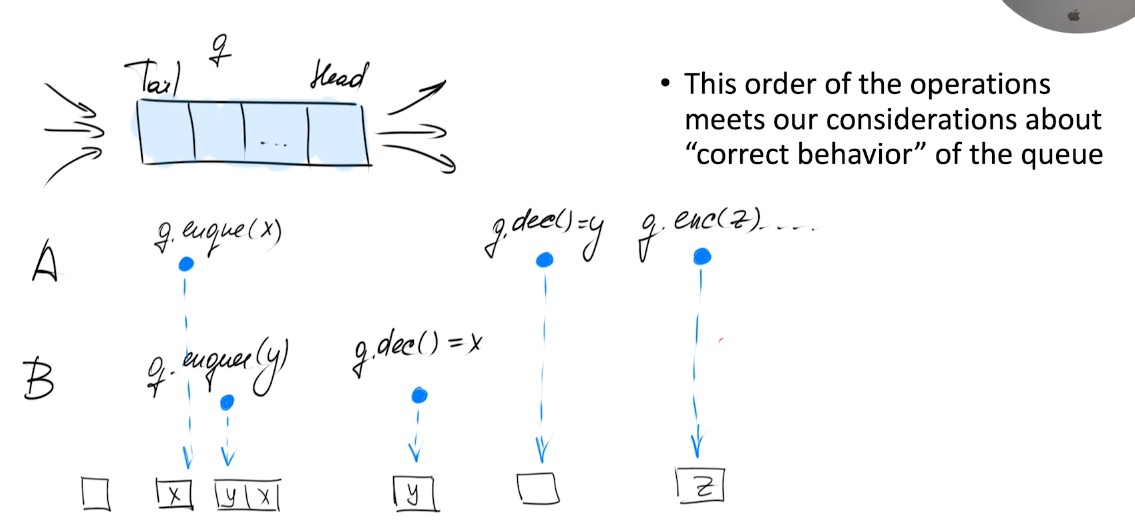 q
Tail Head
...
• This order of the operations
meets our considerations about
“correct behavior” of the queue
A
q.enque(x)
q.dec()=y
q.enc(z)....
B
q.enquee(y)
q.dec()=x
x
y x
y
z